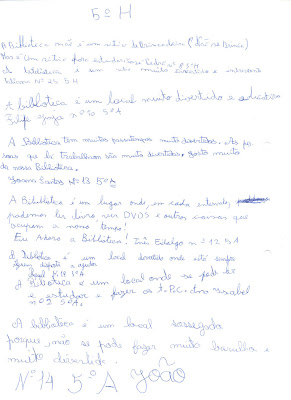 5º H
A Biblioteca não é um sítio de Brincadeira (
é um sítio para estudar
A biblioteca é um sítio muito divertido e interessante
Nº 25 5º H
A biblioteca é um local muito divertido e educativo
Filipe nº 10 5ºA
A Biblioteca tem muitos passatempos muito divertidos. As pes-
soas que lá trabalham são muito divertidas. Gosto muito
da nossa Biblioteca.
Santos Nº 13 5ºA
A Biblioteca é um lugar onde, em cada intervalo,
podemos ler livros, ver DVDS e outras coisas que
ocupem o nosso tempo!
Eu Adoro a Biblioteca! Inês Fidalgo nº 12 5ºA
A Biblioteca é um local divertido onde está sempre
alguém disposto a ajudar
Nº 19 5ºA
A Biblioteca é um local onde se pode ler
e estudar e fazer os t.P.C. Ana Isabel
nº 2 5ºA.
A biblioteca é um local sossegado
porque, não se pode fazer muito barulho e
muito divertido.
Nº 14 5º A João